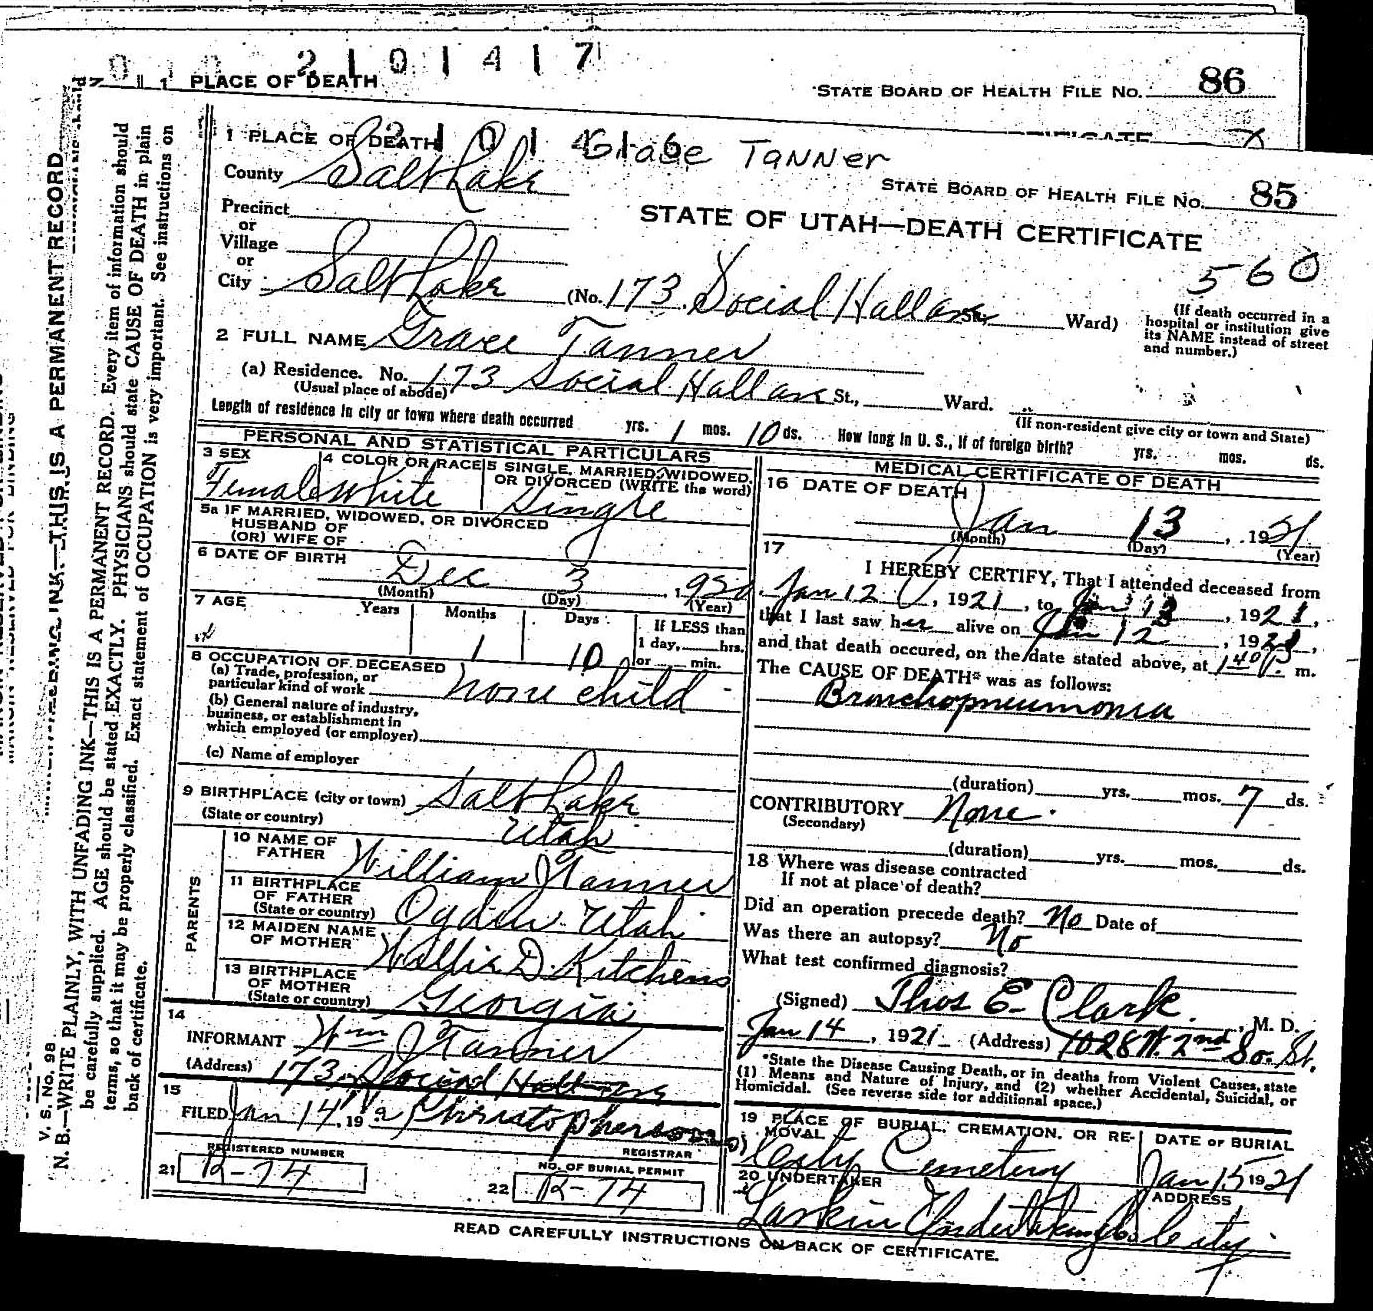 2 1 0 1 4 1 7
1 PLACE OF DEATH
STATE BOARD OF HEALTH FILE NO. 86
1 PLACE OF DEATH
2 1 0 1 4 1 6
Grace Tanner
County Salt Lake
STATE BOARD OF HEALTH FILE NO. 85
Precinct
or
Village
or
City Salt Lake
STATE OF UTAH—DEATH CERTIFICATE
560
(No. 173 Social Hall ave St. Ward)
(If death occurred in a hospital or institution give its NAME instead of street and number.)
2 FULL NAME Grace Tanner
(a) Residence. No. 173 Social Hall ave St., Ward.
(Usual place of abode)
(If non-resident give city or town and State)
Length of residence in city or town where death occurred yrs. 1 mos. 10 ds. How long in U. S., if of foreign birth? yrs. mos. ds.
PERSONAL AND STATISTICAL PARTICULARS
3 SEX
Female
4 COLOR OR RACE
White
5 SINGLE, MARRIED, WIDOWED, OR DIVORCED (WRITE the word)
Single
5a IF MARRIED, WIDOWED, OR DIVORCED
HUSBAND OF
(OR) WIFE OF
6 DATE OF BIRTH
Dec 3, 1920
(Month) (Day) (Year)
7 AGE
Years Months Days If LESS than
1 10 1 day, hrs.
or min.
8 OCCUPATION OF DECEASED
(a) Trade, profession, or
particular kind of work none child
(b) General nature of industry,
business, or establishment in
which employed (or employer)
(c) Name of employer
9 BIRTHPLACE (city or town) Salt Lake
(State or country) Utah
PARENTS
10 NAME OF
FATHER William J Tanner
11 BIRTHPLACE
OF FATHER
(State or country) Ogden Utah
12 MAIDEN NAME
OF MOTHER Wallis D. Kitchens
13 BIRTHPLACE
OF MOTHER
(State or country) Georgia
14
INFORMANT Wm J Tanner
(Address) 173 Social Hall ave
15
FILED Jan 14, 19
REGISTRAR
REGISTERED NUMBER
21 R-74
NO. OF BURIAL PERMIT
22 R-74
MEDICAL CERTIFICATE OF DEATH
16 DATE OF DEATH
Jan 13, 1921
(Month) (Day) (Year)
17
I HEREBY CERTIFY, That I attended deceased from
Jan 12, 1921, to Jan 13, 1921,
that I last saw her alive on Jan 12, 1921,
and that death occured, on the date stated above, at 1 40 P. m.
The CAUSE OF DEATH* was as follows:
Bronchopneumonia
(duration) yrs. mos. 7 ds.
CONTRIBUTORY None.
(Secondary)
(duration) yrs. mos. ds.
18 Where was disease contracted
If not at place of death?
Did an operation precede death? No Date of
Was there an autopsy? No
What test confirmed diagnosis?
(Signed) Thos E. Clark, M. D.
Jan 14, 1921 (Address) 1028 W. 2nd So. St.
*State the Disease Causing Death, or in deaths from Violent Causes, state
(1) Means and Nature of Injury, and (2) whether Accidental, Suicidal, or
Homicidal. (See reverse side for additional space.)
19 PLACE OF BURIAL, CREMATION, OR RE-
MOVAL City Cemetery
DATE OF BURIAL
Jan 15 1921
20 UNDERTAKER
Larkin Undertaking Co.
ADDRESS
City
READ CAREFULLY INSTRUCTIONS ON BACK OF CERTIFICATE.
V. S. No. 98
N. B.—WRITE PLAINLY, WITH UNFADING INK—THIS IS A PERMANENT RECORD. Every item of information should
be carefully supplied. AGE should be stated EXACTLY. PHYSICIANS should state CAUSE OF DEATH in plain
terms, so that it may be properly classified. Exact statement of OCCUPATION is very important. See instructions on
back of certificate.